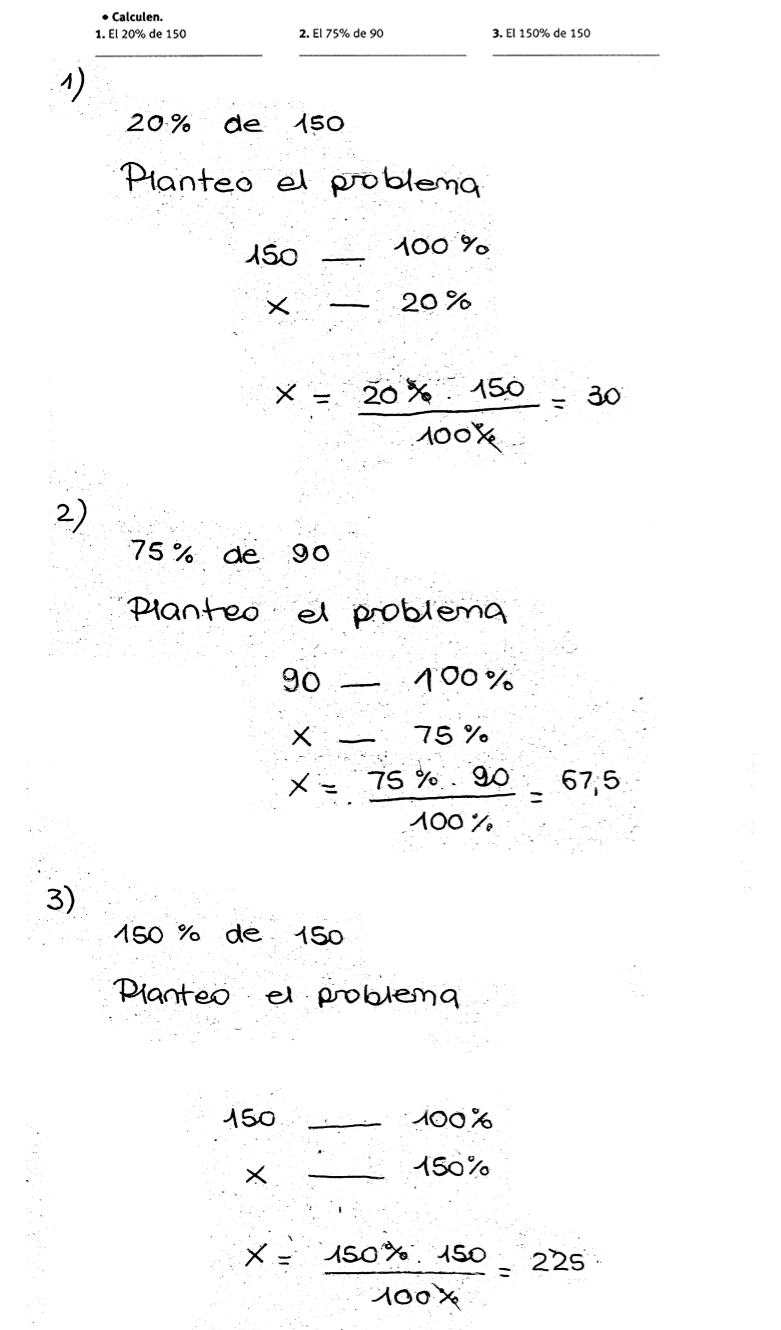 • Calculen.
1. El 20% de 150 2. El 75% de 90 3. El 150% de 150
1)
20% de 150
Planteo el problema
150 — 100%
x — 20%
x = 20% . 150 / 100% = 30
2)
75% de 90
Planteo el problema
90 — 100%
x — 75%
x = 75% . 90 / 100% = 67,5
3)
150% de 150
Planteo el problema
150 — 100%
x — 150%
x = 150% . 150 / 100% = 225